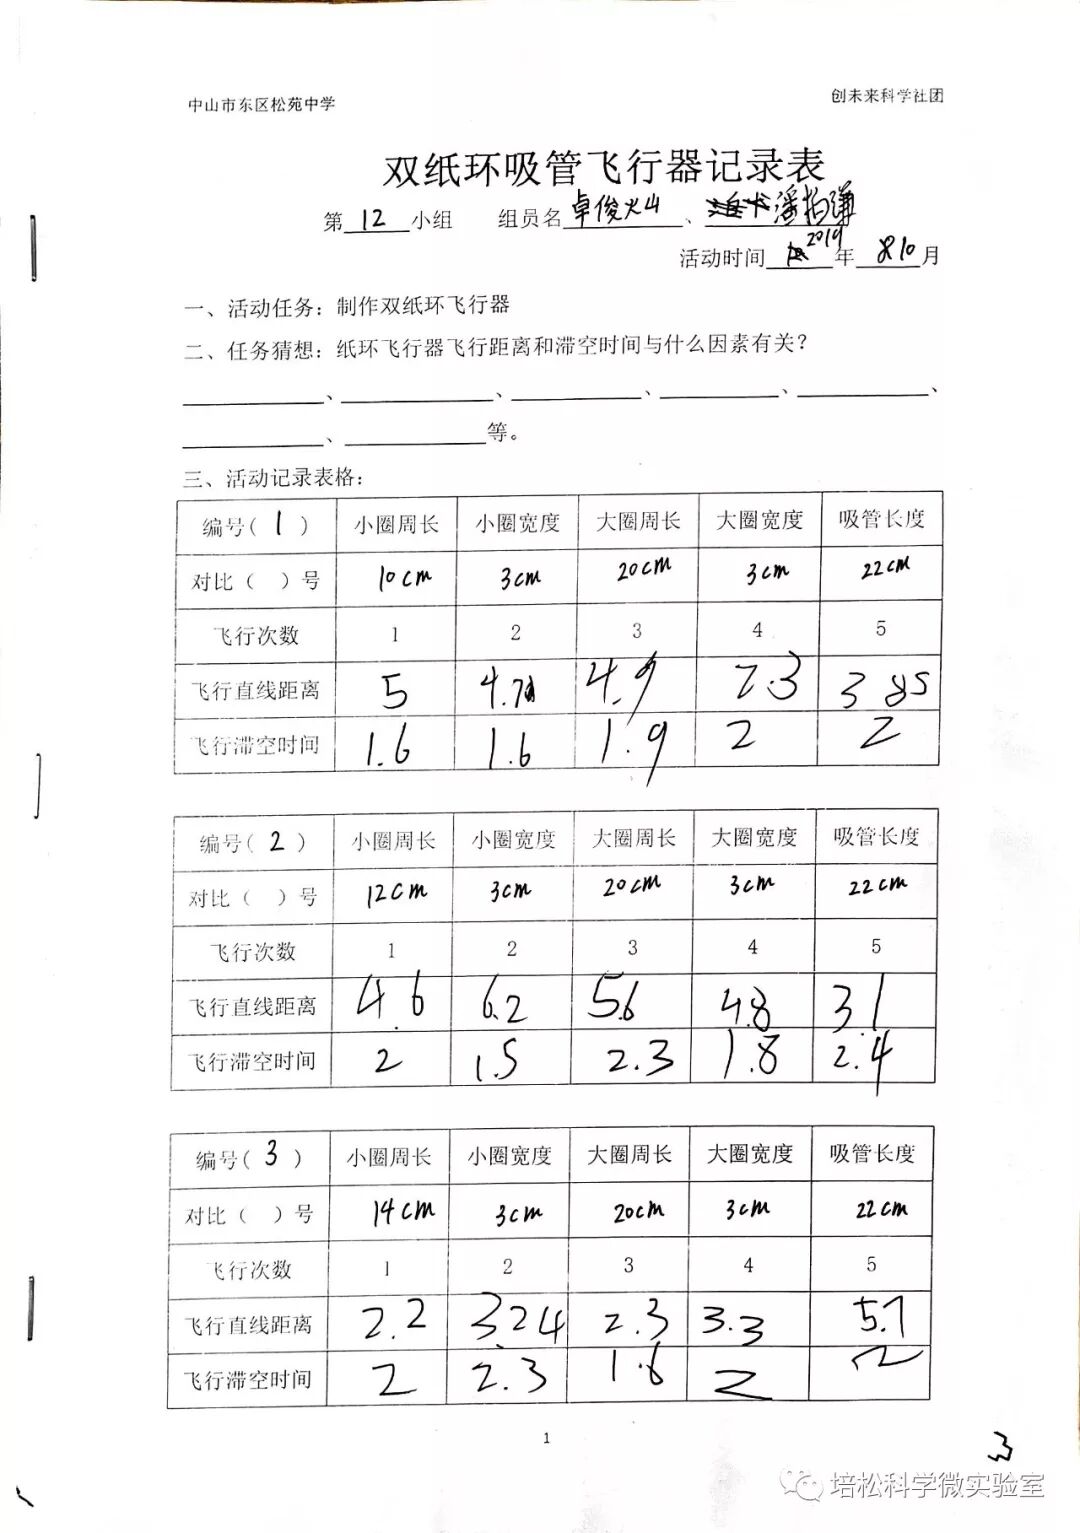 中山市东区松苑中学 创未来科学社团
双纸环吸管飞行器记录表
第 12 小组 组员名 卓俊火山 、
活动时间 2019 年 8 10 月
一、活动任务：制作双纸环飞行器
二、任务猜想：纸环飞行器飞行距离和滞空时间与什么因素有关？
、 、 、 、 、
、 等。
三、活动记录表格：
编号( 1 ) 小圈周长 小圈宽度 大圈周长 大圈宽度 吸管长度
对比（ ）号 10cm 3cm 20cm 3cm 22cm
飞行次数 1 2 3 4 5
飞行直线距离 5 4.9 2.3 3 85
飞行滞空时间 1.6 1.6 1.9 2 2
编号( 2 ) 小圈周长 小圈宽度 大圈周长 大圈宽度 吸管长度
对比（ ）号 12cm 3cm 20cm 3cm 22cm
飞行次数 1 2 3 4 5
飞行直线距离 4.6 6.2 5.6 4.8 3.1
飞行滞空时间 2 1.5 2.3 1.8 2.4
编号( 3 ) 小圈周长 小圈宽度 大圈周长 大圈宽度 吸管长度
对比（ ）号 14cm 3cm 20cm 3cm 22cm
飞行次数 1 2 3 4 5
飞行直线距离 2.2 3.24 2.3 3.3 5.7
飞行滞空时间 2 2.3 1.6 2 2
1
3
培松科学微实验室